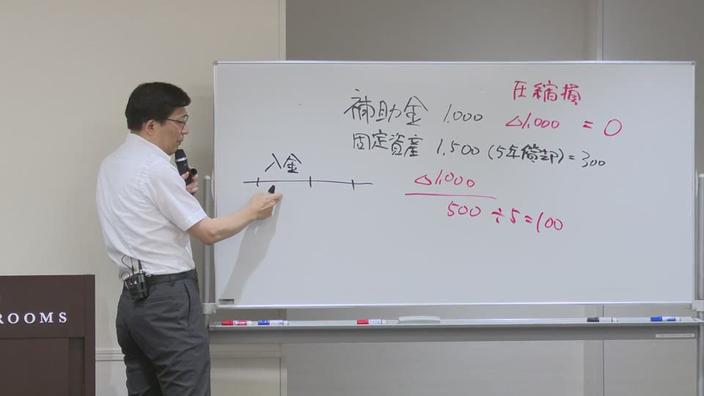 圧縮損
補助金 1.000 △1.000 = 0
固定資産 1.500 (5年償却) = 300
入金
△1.000
500 ÷ 5 = 100
ROOMS